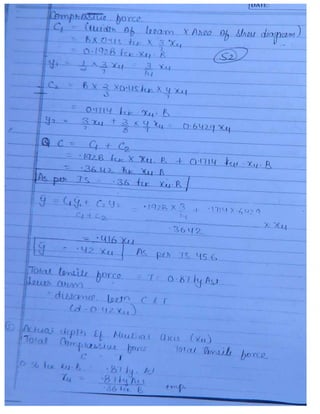 Compressive force
C₁ = (width of beam × Area of stress diagram)
= B × 0.45 fck × 3/7 xu
= 0.1928 fck xu. B
(52)
y₁ = 1/2 × 3/7 xu = 3/14 xu
C₂ = B × 2/3 × 0.45 fck × 4/7 xu
= 0.1714 fck xu. B
y₂ = 3/7 xu + 3/8 × 4/7 xu = 0.6429 xu
C = C₁ + C₂
= .1928 fck × xu. B + 0.1714 fck. xu. B
= .3642 fck xu B
As per IS = .36 fck xu. B
ȳ = C₁y₁ + C₂y₂ / C₁ + C₂ = .1928 × 3/14 + .1714 × 6429 / 3642 × xu
= .416 xu
ȳ = .42 xu As per IS 456
Total tensile force = T = 0.87 fy Ast
Lever arm
= distance betn C & T
(d - 0.42 xu)
Actual depth of Neutral axis (xu)
Total Compressive force Total tensile force
C T
0.36 fck xu. B = .87 fy. Ast
xu = .87 fy Ast / .36 fck B imp.